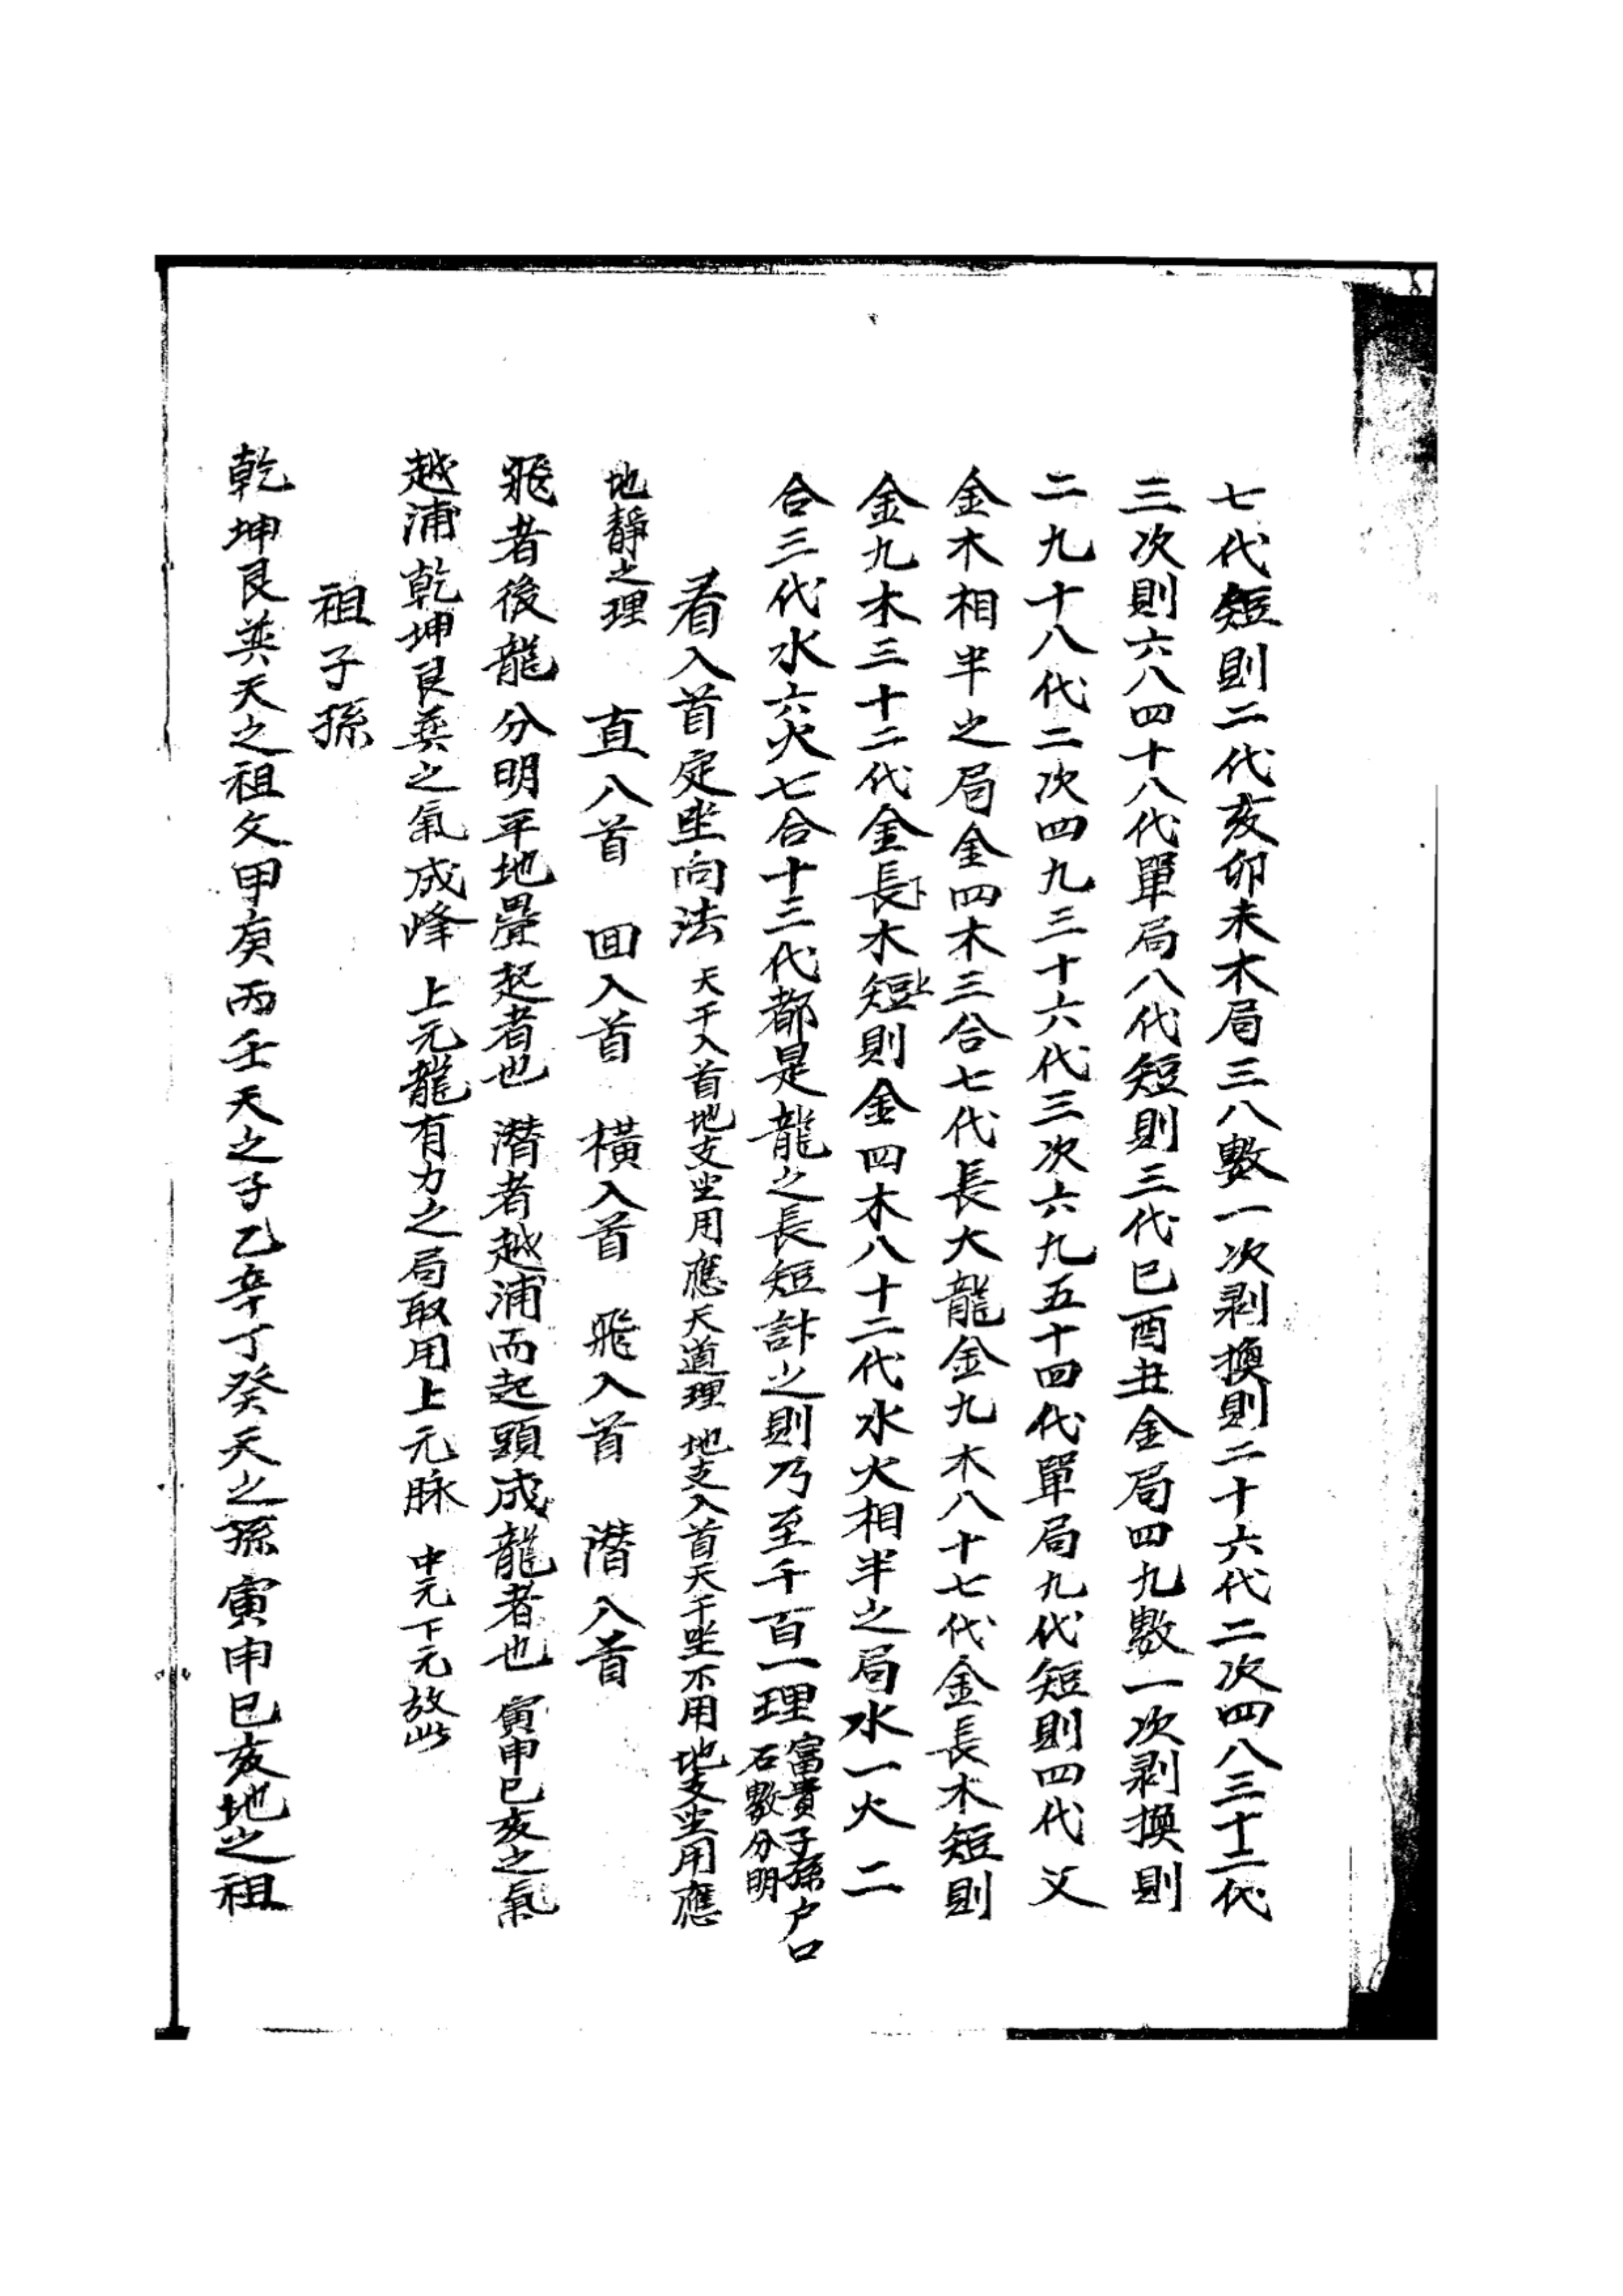 七代短則二代亥卯未木局三八數一次剥換則二十六代二次四八三十二代
三次則六八四十八代單局八代短則三代巳酉丑金局四九數一次剥換則
二九十八代二次四九三十六代三次六九五十四代單局九代短則四代又
金木相半之局金四木三合七代長大龍金九木八十七代金長木短則
金九木三十二代金長下木短上三合則金四木八十二代水火相半之局水一火二
合三代水六火七合十三代都是龍之長短計之則乃至千百一理富貴子孫户口
石數分明
看入首定坐向法 天干入首地支坐用應天道理 地支入首天干坐不用地支坐用應
地靜之理 直入首 回入首 橫入首 飛入首 潛入首
飛者後龍分明平地疊起者也 潛者越浦而起頭成龍者也 寅申巳亥之氣
越浦乾坤艮巽之氣成峰 上元龍有力之局取用上元脉 中元下元放此
祖子孫
乾坤艮巽天之祖父甲庚丙壬天之子乙辛丁癸天之孫寅申巳亥地之祖